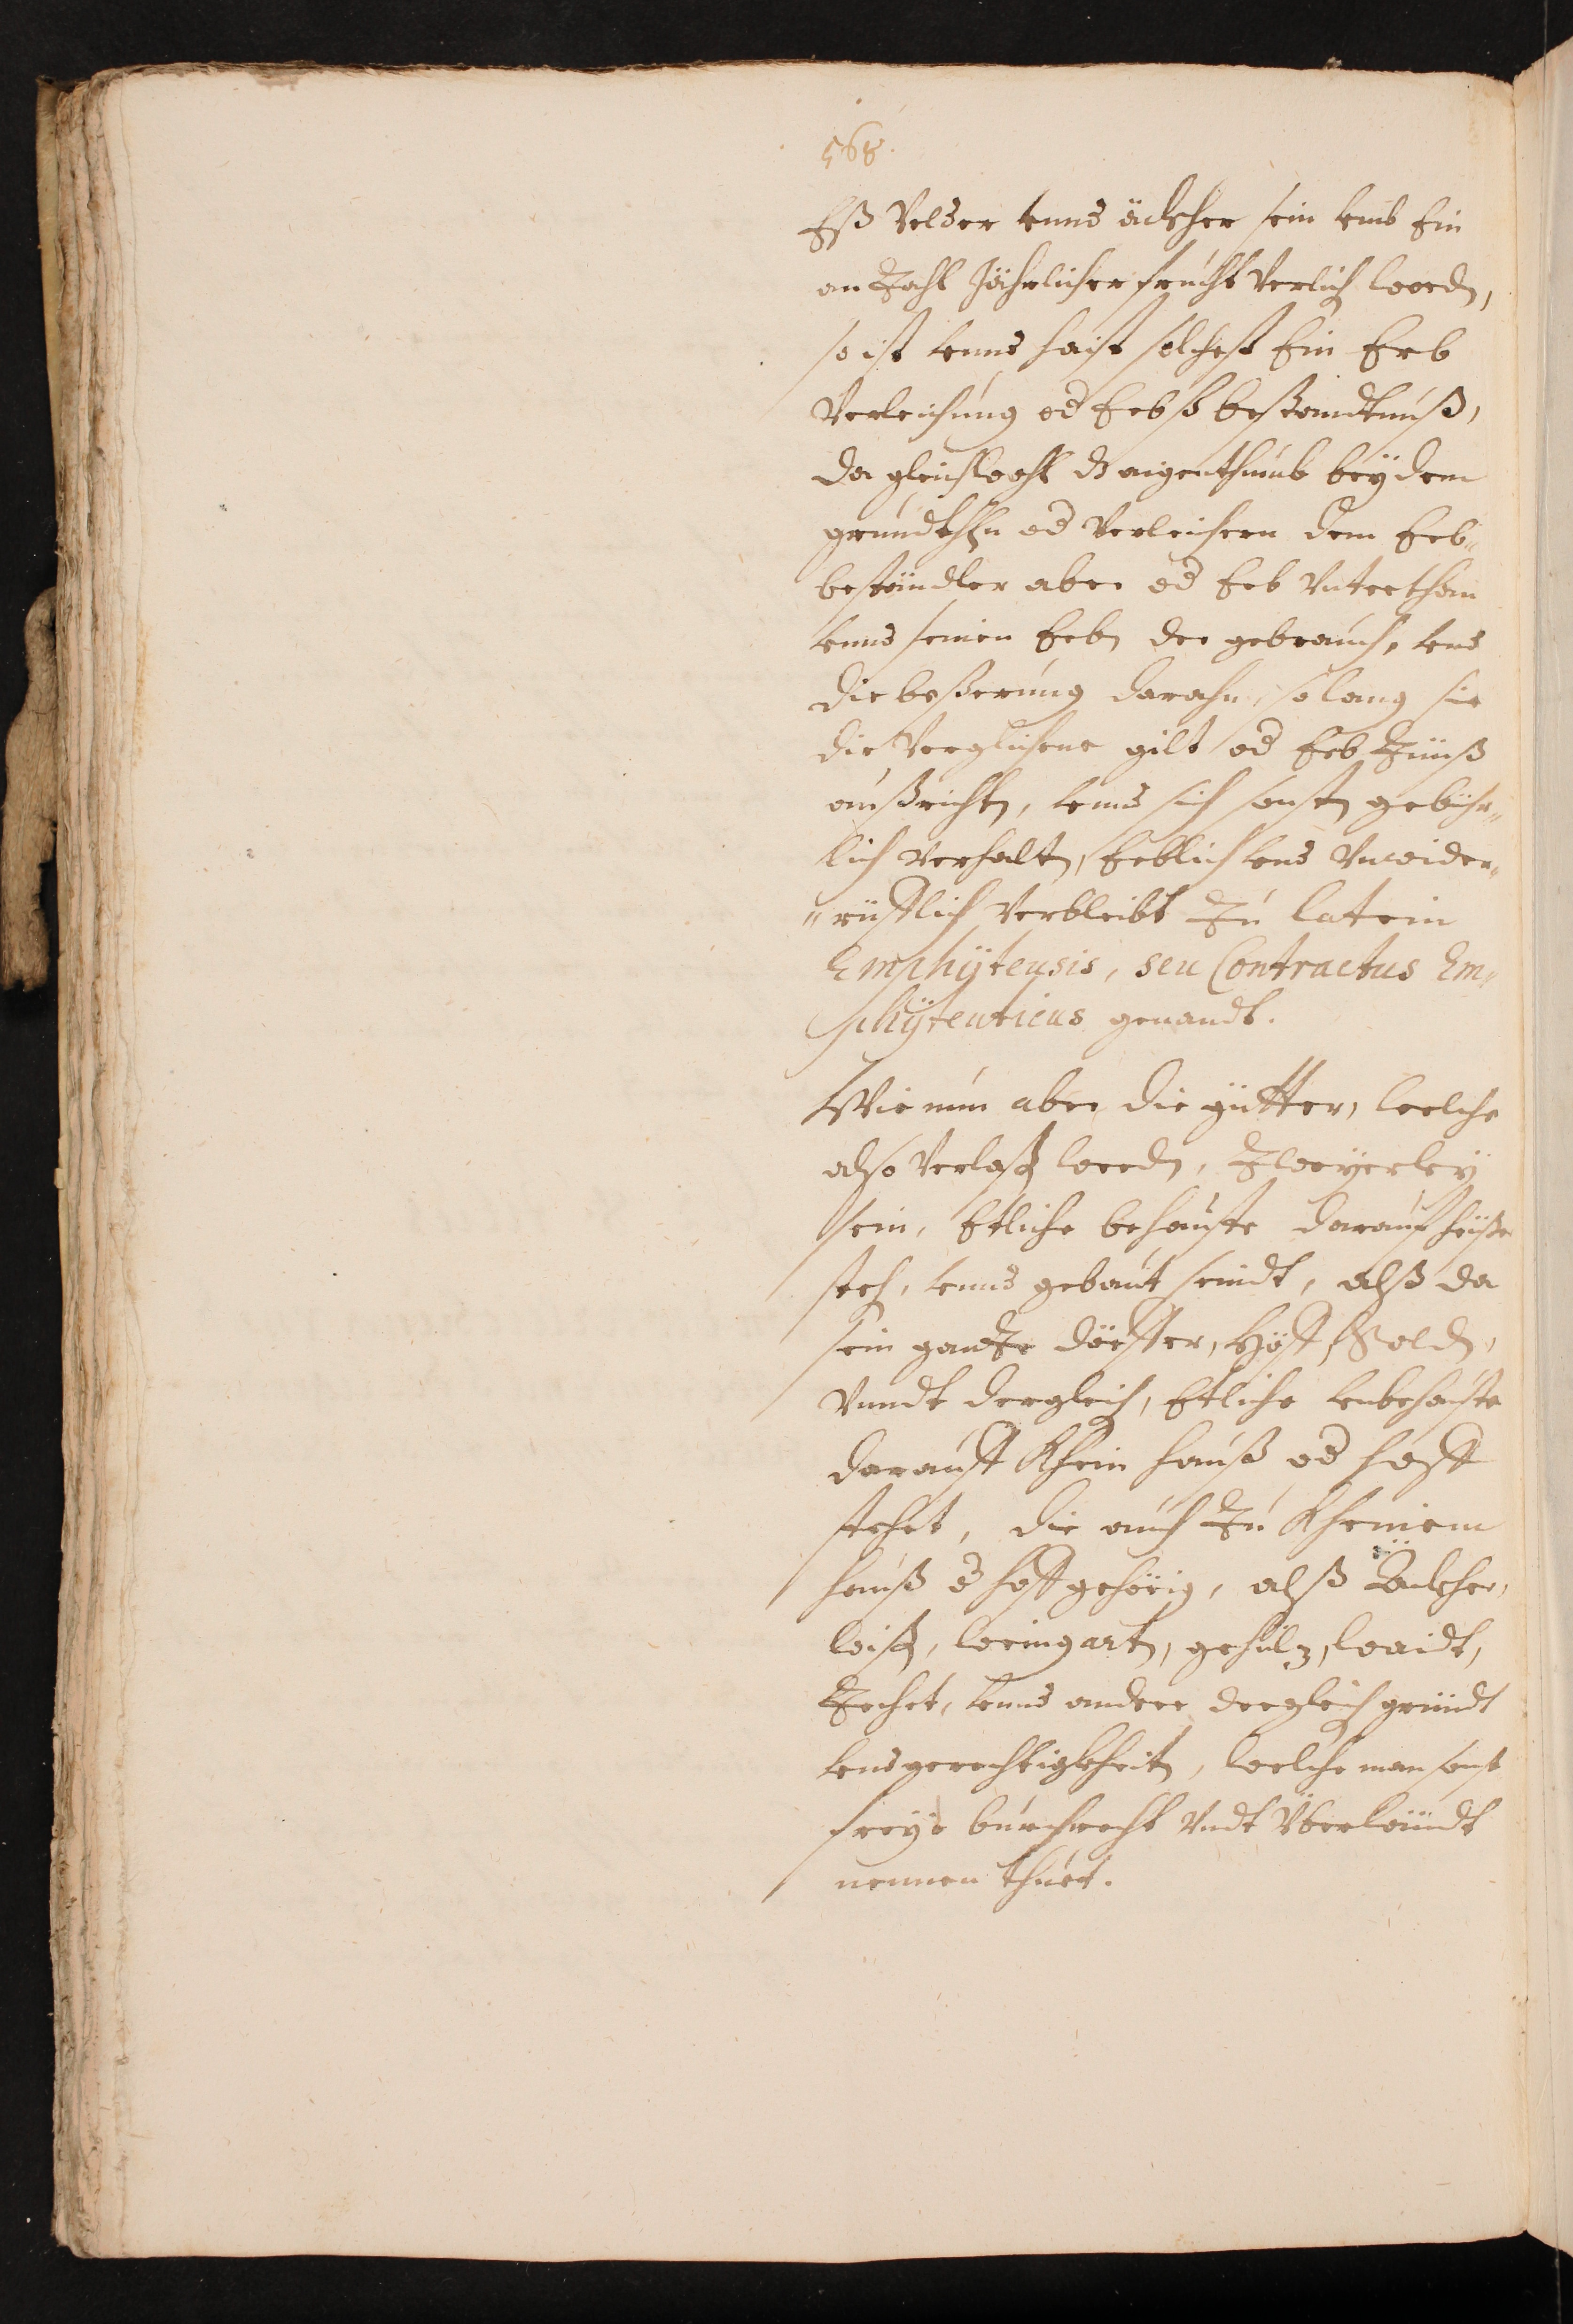 568.
Eß Velder vnnd äckher sein vmb Ein
an Zahl Jährlicher frücht verlich word,
so ist vnnd haist solchest Ein Erb
Verleichung od Erbs bestandtnuß,
da gleichwohl dz aigenthumb beÿ dem
grundthhn od Verleichern dem Erb„
beständler aber od Erb Vnterthan
vnnd seinen Erbn der gebrauch, vnd
die beßerung darahn, so lang sie
die Verglichene gilt od Erb Zünß
außrichtn, vnnd sich sonstn gebühr„
lich verhaltn, Erblich vnd Vnwider„
„rüfflich verbleibt Zu latein
Emphÿteusis, seu Contractus Em„
phÿteuticus genandt.
Wie nun aber die gütter, welche
also Verlaß werdn, Zweÿerleÿ
sein, Etliche behauste darauf heüßer
steh, vnnd gebaut seindt, alß da
sein gantze dörffer, Höff, Sold,
Vnndt dergleich, Etliche vnbehauste
darauff khein hauß od hoff
stehet, die auch Zu kheinem
hauß od hoff gehörig, alß Äckher,
wiß, weingartn, gehülz, waidt,
Zechet, vnnd andere dergleich gründt
vnd gerechtigkheitn, welche man sonst
freÿe burckrecht Vndt Vberländt
nennen thuet.